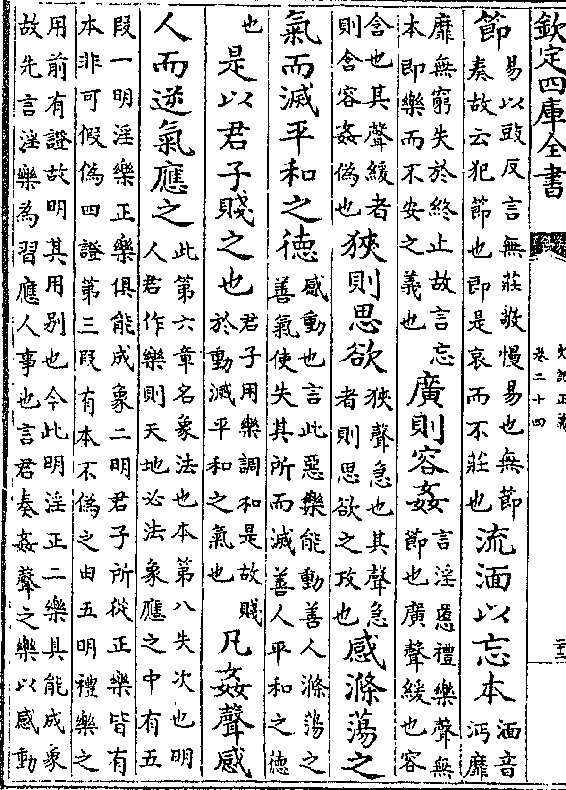 欽定四庫全書
史記正義
卷二十四
節易以豉反言無莊敬慢易也無節奏故云犯節也即是哀而不莊也流湎以忘本湎音沔靡
靡無窮失於終止故言忘本即樂而不安之義也廣則容姦言淫慝禮樂聲無節也廣聲緩也容
含也其聲緩者則含容姦偽也狹則思欲狹聲急也其聲急者則思欲之攻也感滌蕩之
氣而滅平和之徳感動也言此惡樂能動善人滌蕩之善氣使失其所而滅善人平和之徳
也是以君子賤之也君子用樂調和是故賤於動滅平和之氣也凡姦聲感
人而逆氣應之此第六章名象法也本第八失次也明人君作樂則天地必法象應之中有五
段一明淫樂正樂俱能成象二明君子所從正樂皆有本非可假偽四證第三段有本不偽之由五明禮樂之
用前有證故明其用别也今此明淫正二樂具能成象故先言淫樂為習應人事也言君奏姦聲之樂以感動